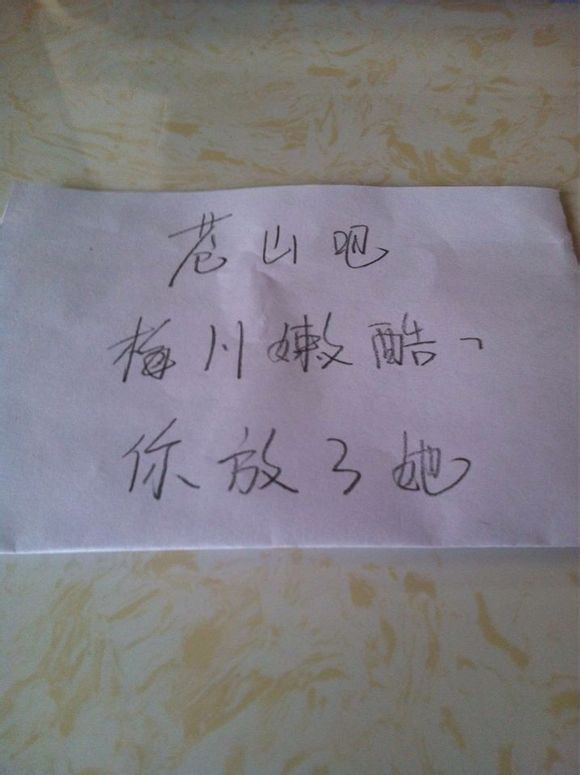 苍山吧
梅川嫩酷つ
你放了她